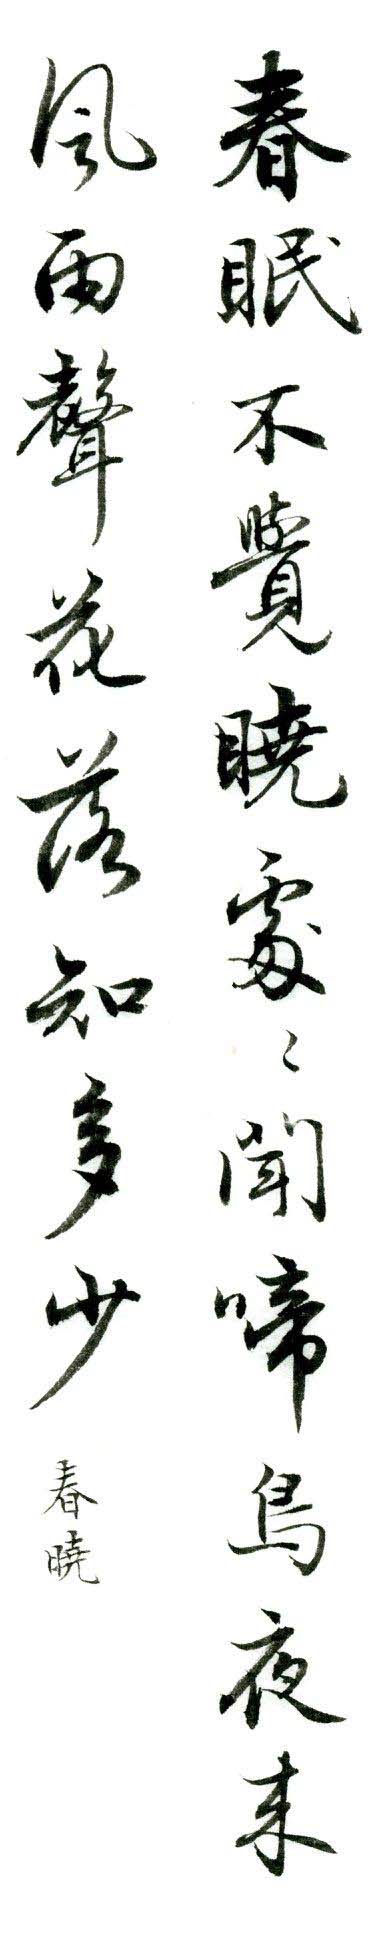 春眠不覺曉處〻聞啼鳥夜来
風雨聲花落知多少
春曉